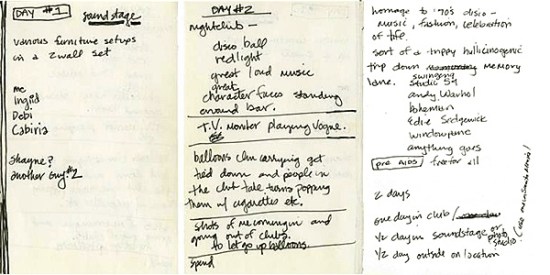 DAY #1
soundstage
various furniture setups
in a 2 wall set
me
Ingrid
Debi
Cabiria
Shayne?
another Guy #2
DAY #2
nightclub –
disco ball
red light
great loud music
great
character faces standing
around bar.
T.V. Monitor playing Vogue.
balloons Im carrying get
tied down and people in
the club take turns popping
them w/ cigarettes etc.
shots of me coming in and
going out of clubs.
to let go up balloons.
homage to '70's disco –
music, fashion, celebration
of life.
sort of a trippy hallicinogenic
trip down memory
lane. swinging
Studio 54
andy Warhol
bohemian
Edie Sedgewick
anything goes
pre AIDS factor all
2 days
one day in club /
1/2 day in soundstage or photo studio
1/2 day outside on location